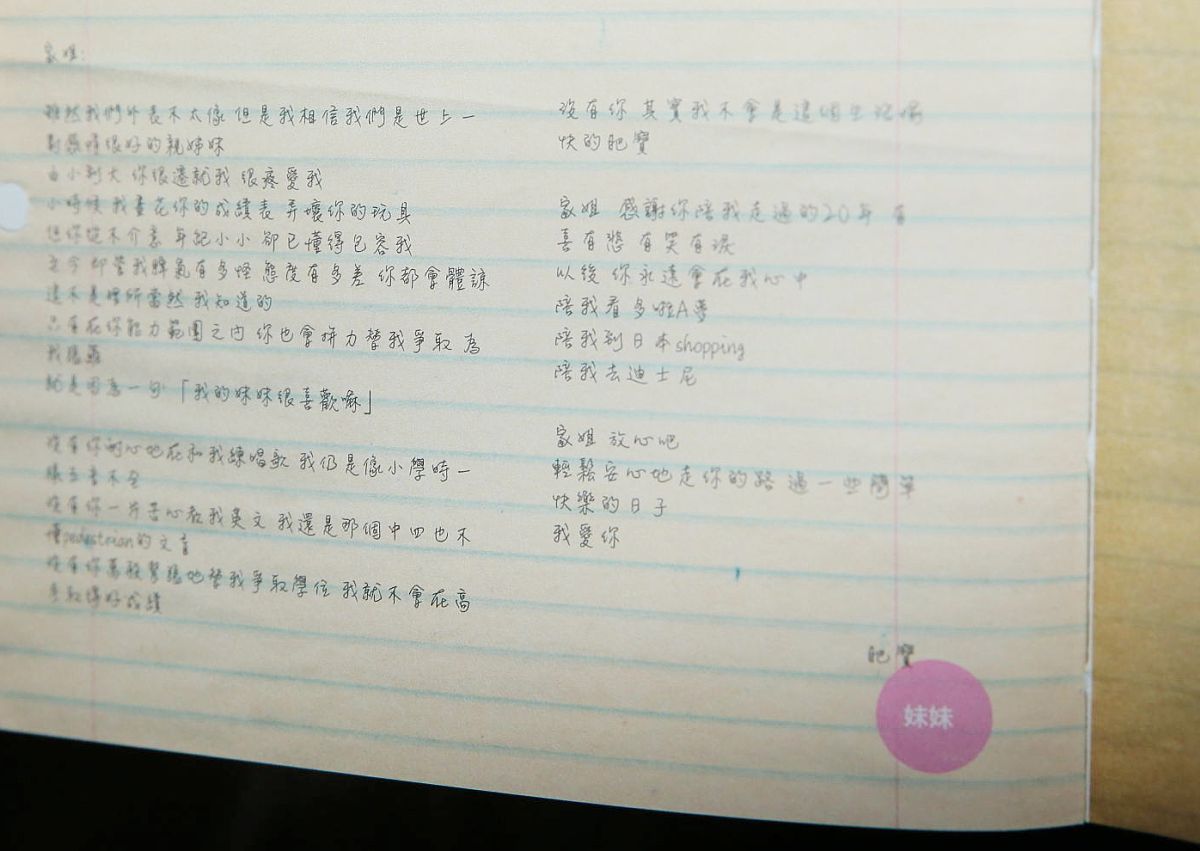 家姐:
雖然我們外表不太像 但是我相信我們是世上一
對感情很好的親姊妹
由小到大 你很遷就我 很疼愛我
小時候 我畫花你的成績表 弄壞你的玩具
但你從不介意 年紀小小 卻已懂得包容我
至今 即管我脾氣有多怪 態度有多差 你都會體諒
這不是理所當然 我知道的
只有在你能力範圍之內 你也會拼力替我爭取 為
我
就是因為一句「我的妹妹很喜歡嘛」
沒有你耐心地在和我練唱歌 我仍是像小學時一
樣五音不全
沒有你一片苦心教我英文 我還是那個中四也不
懂pedestrian的文盲
沒有你 地替我爭取學位 我就不會在高
考取得好成績
沒有你 其實我不會是這個生活愉
快的肥寶
家姐 感謝你陪我走過的20年 有
喜有悲 有笑有淚
以後 你永遠會在我心中
陪我看多啦A夢
陪我到日本shopping
陪我去迪士尼
家姐 放心吧
輕鬆安心地走你的路 過一些簡單
快樂的日子
我愛你
肥寶
妹妹